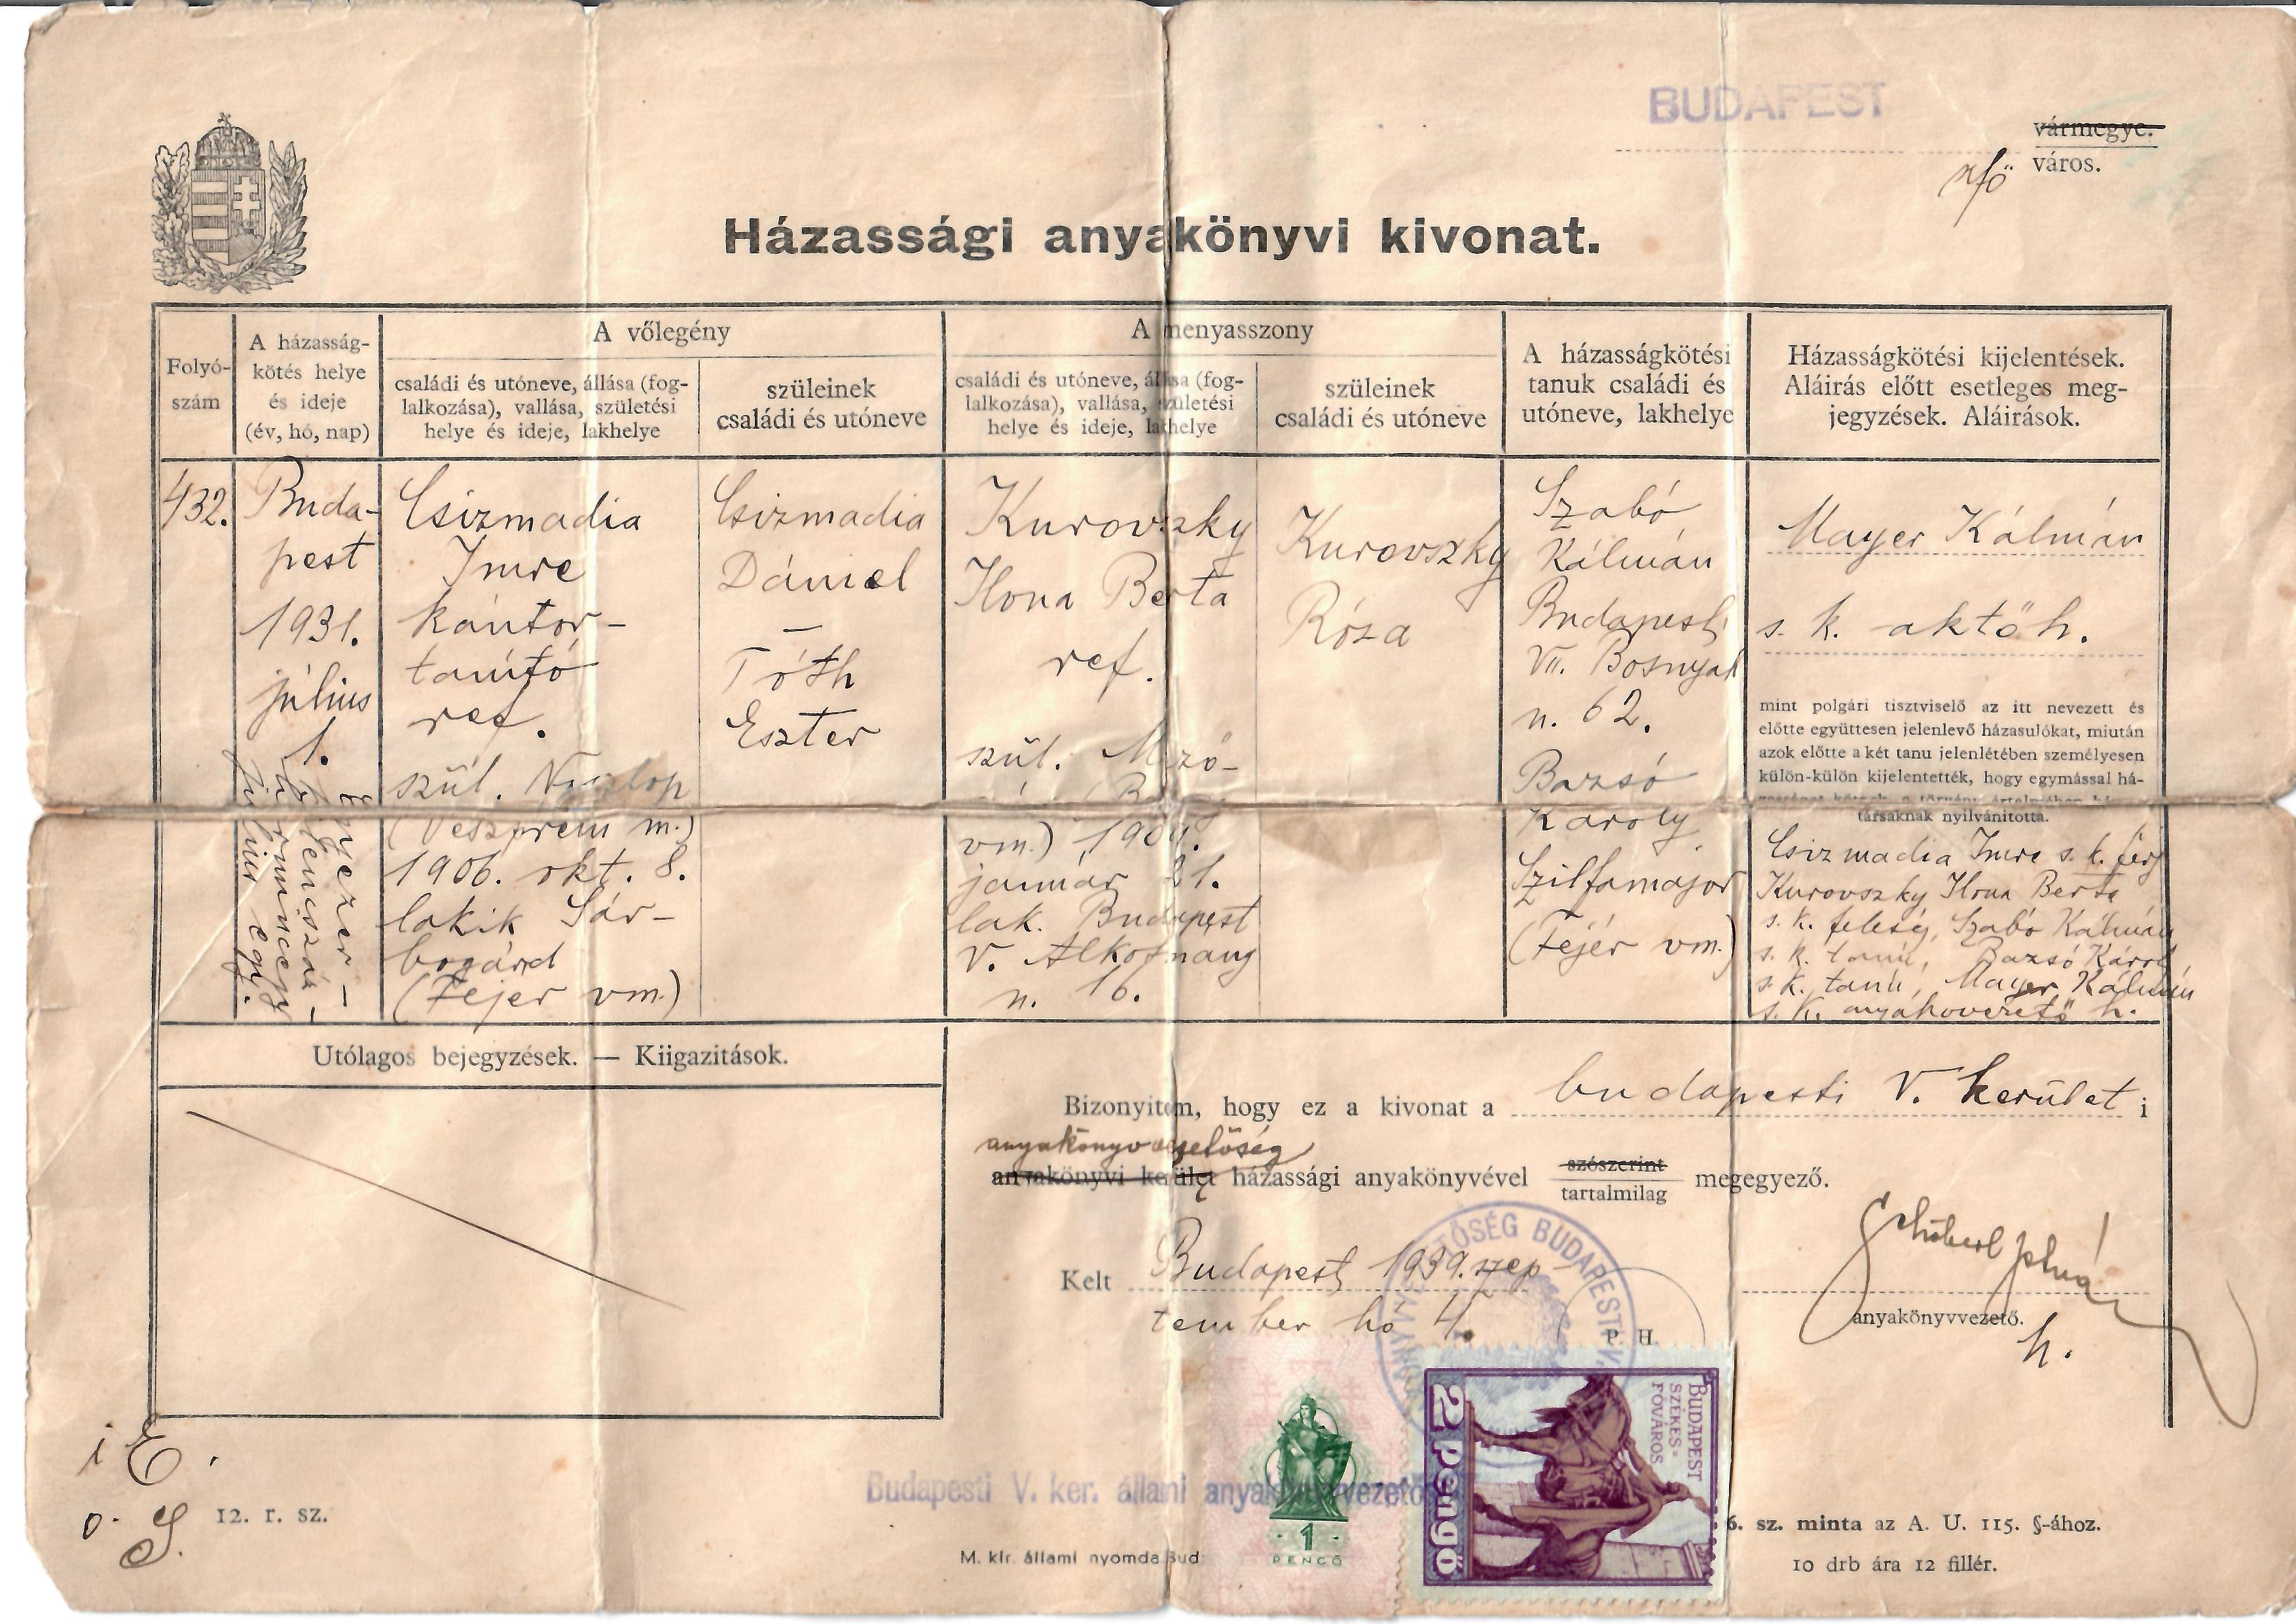 BUDAPEST
vármegye.
város.
Házassági anyakönyvi kivonat.
Folyó-
szám
A házasság-
kötés helye
és ideje
(év, hó, nap)
A vőlegény
családi és utóneve, állása (fog-
lalkozása), vallása, születési
helye és ideje, lakhelye
szüleinek
családi és utóneve
A menyasszony
családi és utóneve, állása (fog-
lalkozása), vallása, születési
helye és ideje, lakhelye
szüleinek
családi és utóneve
A házasságkötési
tanuk családi és
utóneve, lakhelye
Házasságkötési kijelentések.
Aláirás előtt esetleges meg-
jegyzések. Aláirások.
432.
Buda-
pest
1931.
július
1.
Ezerkilencszáz-
harmincegy
július egy.
Csizmadia
Imre
kántor-
tanító
ref.
szül. Noszlop
(Veszprém m.)
1906. okt. 8.
lakik Sár-
bogárd
(Fejér vm.)
Csizmadia
Dániel
—
Tóth
Eszter
Kurovszky
Ilona Berta
ref.
szül. Mező-
vm.) 1909.
január 21.
lak. Budapest
V. Alkotmány
u. 16.
Kurovszky
Róza
Szabó
Kálmán
Budapest
VII. Bosnyák
u. 62.
Bazsó
Károly
Szilfamajor
(Fejér vm.)
Mayer Kálmán
s. k. aktőh.
mint polgári tisztviselő az itt nevezett és
előtte együttesen jelenlevő házasulókat, miután
azok előtte a két tanu jelenlétében személyesen
külön-külön kijelentették, hogy egymással há-
társaknak nyilvánította.
Csizmadia Imre s. k. férj
Kurovszky Ilona Berta
s. k. feleség, Szabó Kálmán
s. k. tanú, Bazsó Károly
s. k. tanú, Mayer Kálmán
s. k. anyakövezető h.
Utólagos bejegyzések. — Kiigazitások.
Bizonyitom, hogy ez a kivonat a budapesti V. kerület i
anyakönyvvezetőség
anyakönyvi kerület házassági anyakönyvével szószerint
tartalmilag megegyező.
Kelt Budapest 1939. szep-
tember hó 4.
P. H.
anyakönyvvezető.
h.
BUDAPEST
SZÉKES-
FŐVÁROS
2 Pengő
1
PENGŐ
Budapesti V. ker. állami anyakönyvvezető
i E.
o. S.
12. r. sz.
M. kir. állami nyomda Bud
6. sz. minta az A. U. 115. §-ához.
10 drb ára 12 fillér.